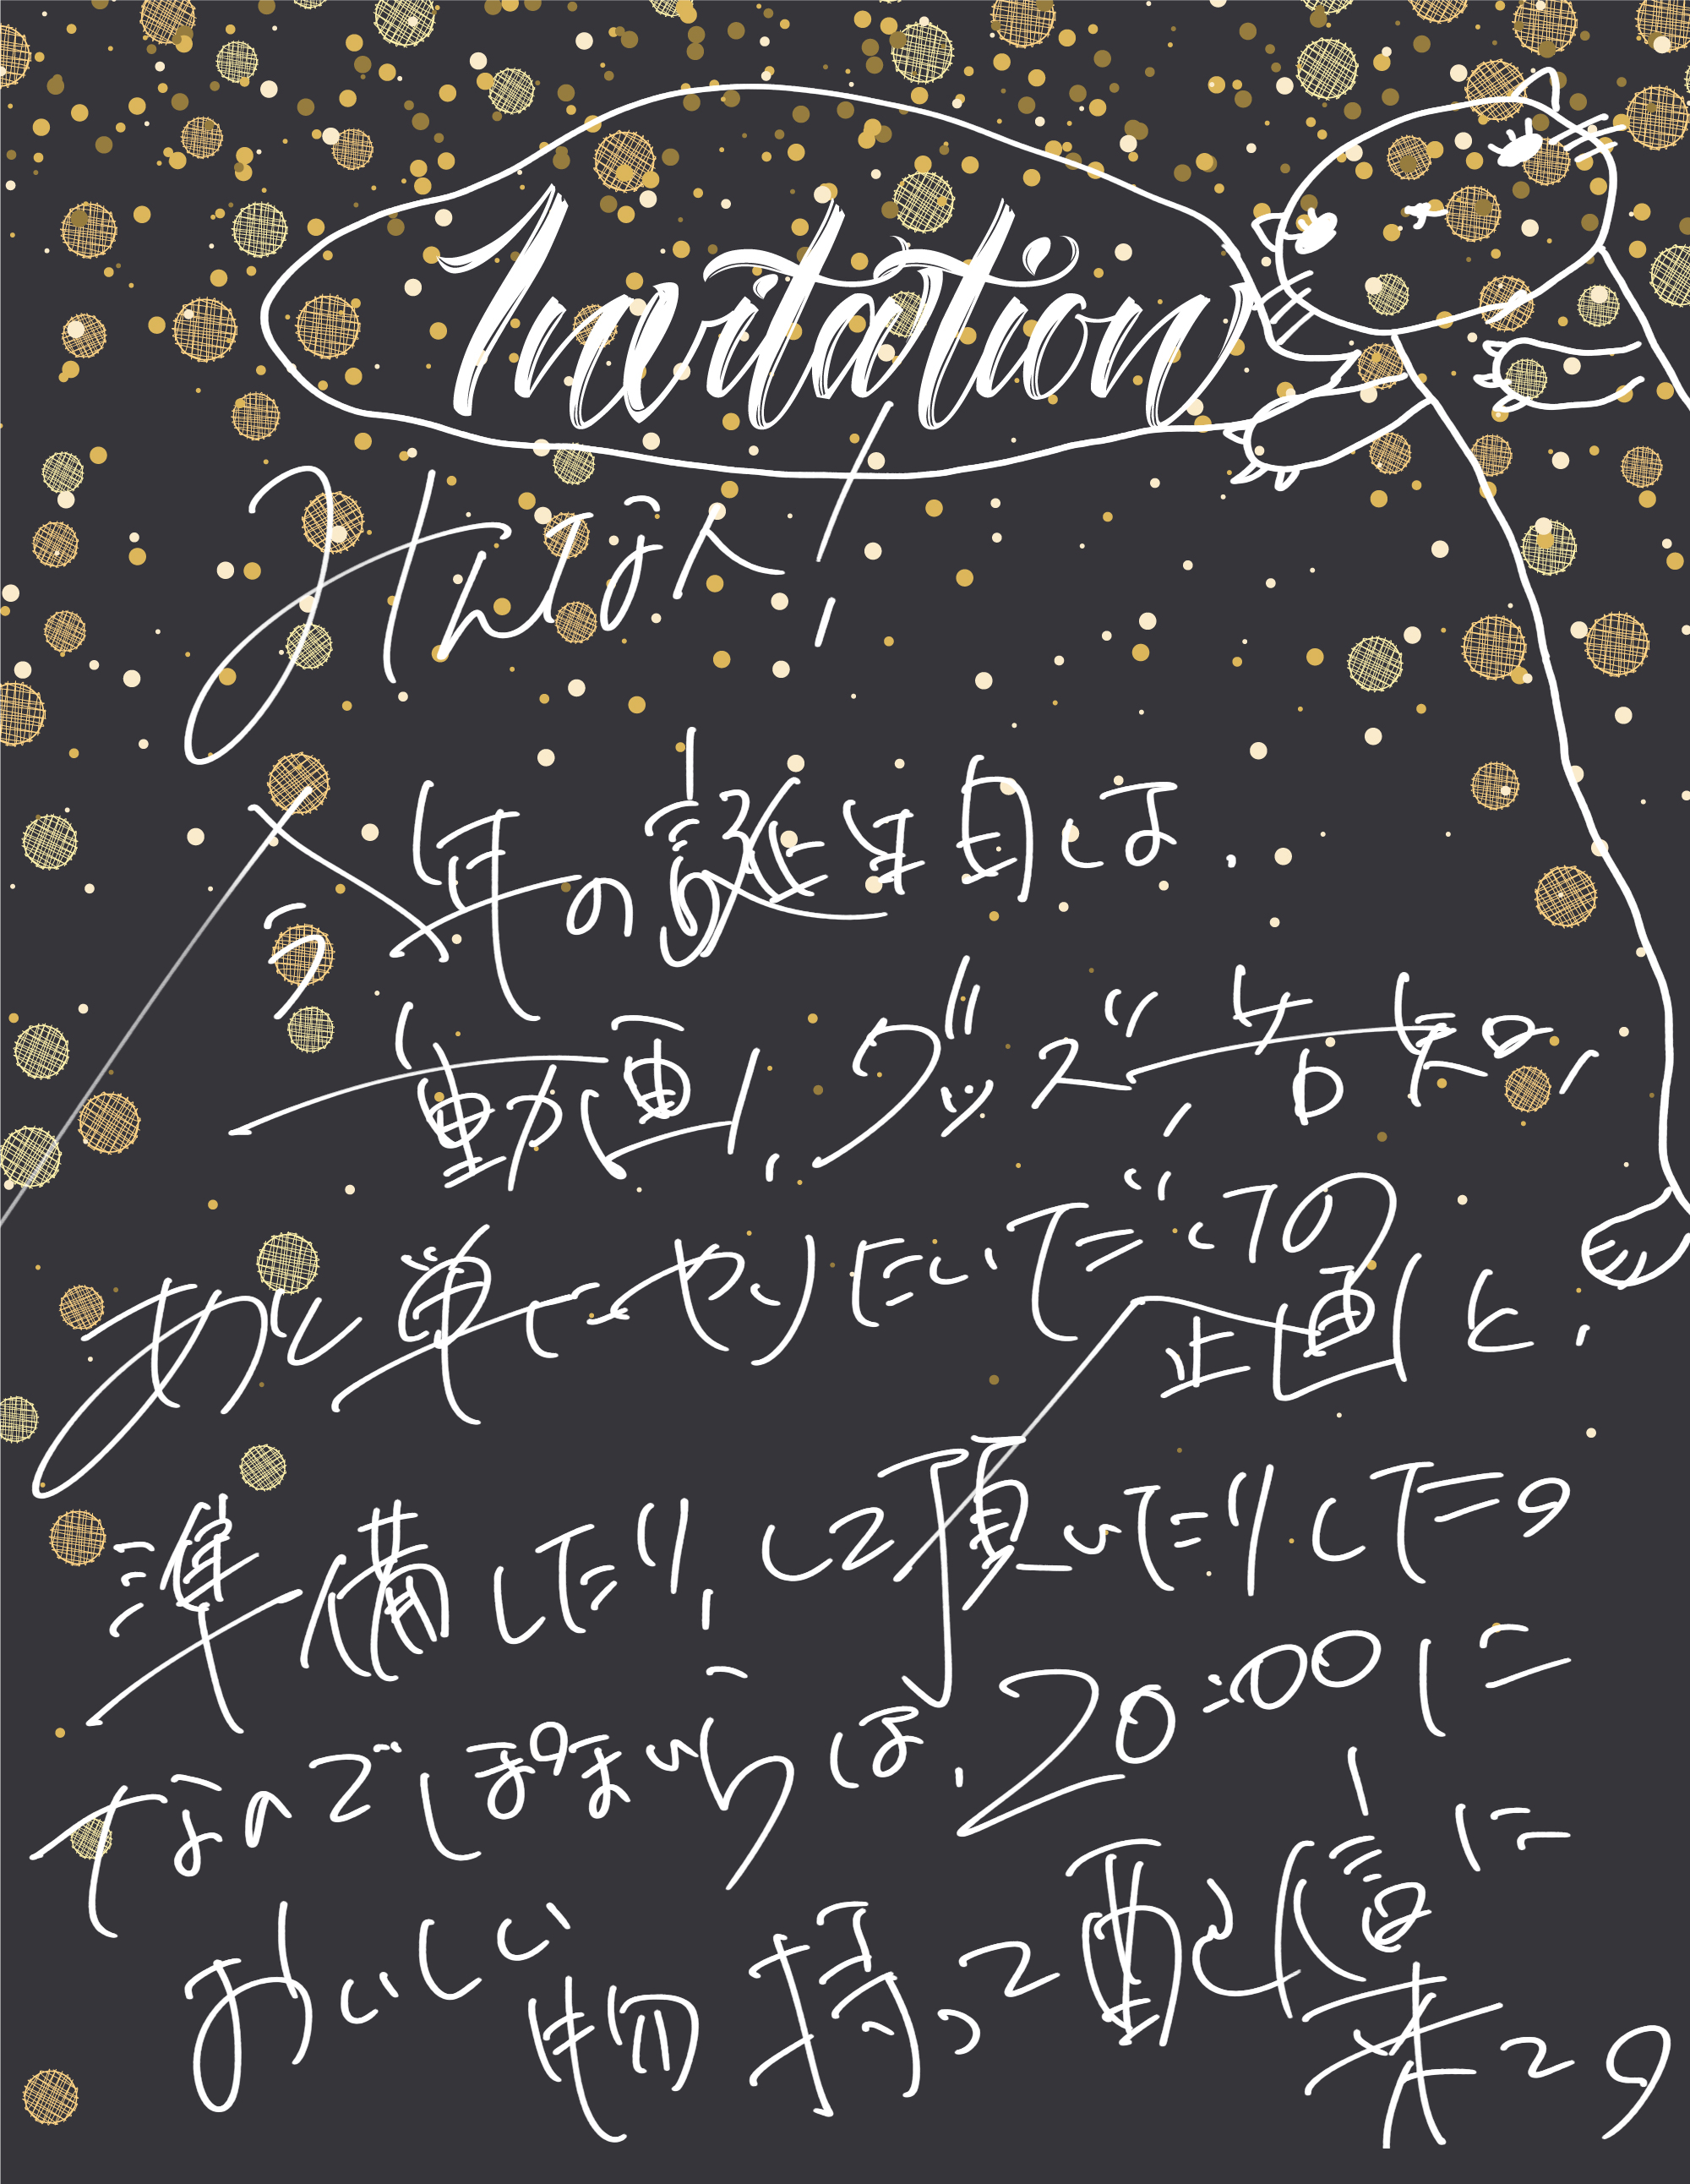 Invitation
みんなへ!
今年の誕生日は、
動画、グッズ、告知、
あと単一やりたいてだいの
企画と、
準備したり、して頂いたりしたの
なのでしおまいらは、20:00に
おいしい物持って配信に
来ての